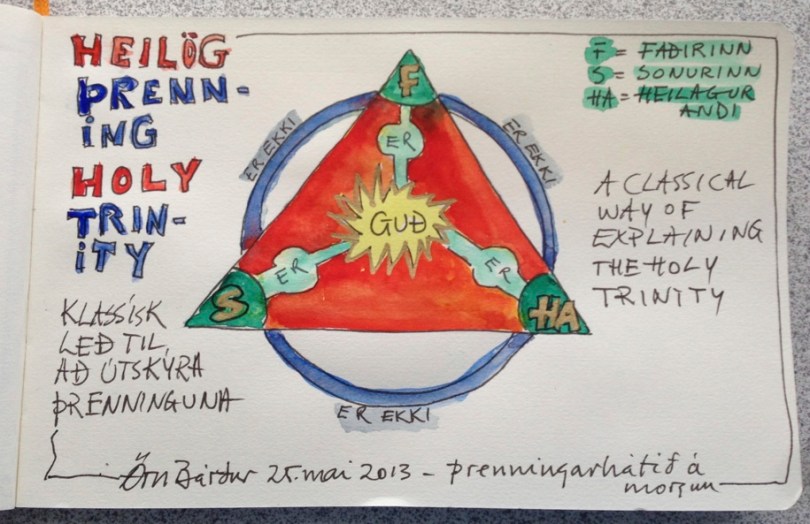 HEILÖG
ÞRENN-
ING
HOLY
TRIN-
ITY
KLASSÍSK
LEÐ TIL
AÐ ÚTSKÝRA
ÞRENNINGUNA
F
ER
ER EKKI
ER EKKI
GUÐ
ER
ER
S
HA
ER EKKI
F = FAÐIRINN
S = SONURINN
HA = HEILAGUR
ANDI
A CLASSICAL
WAY OF
EXPLAINING
THE HOLY
TRINITY
Örn Bárður 25. maí 2013 – þrenningarhátíð á
morgun